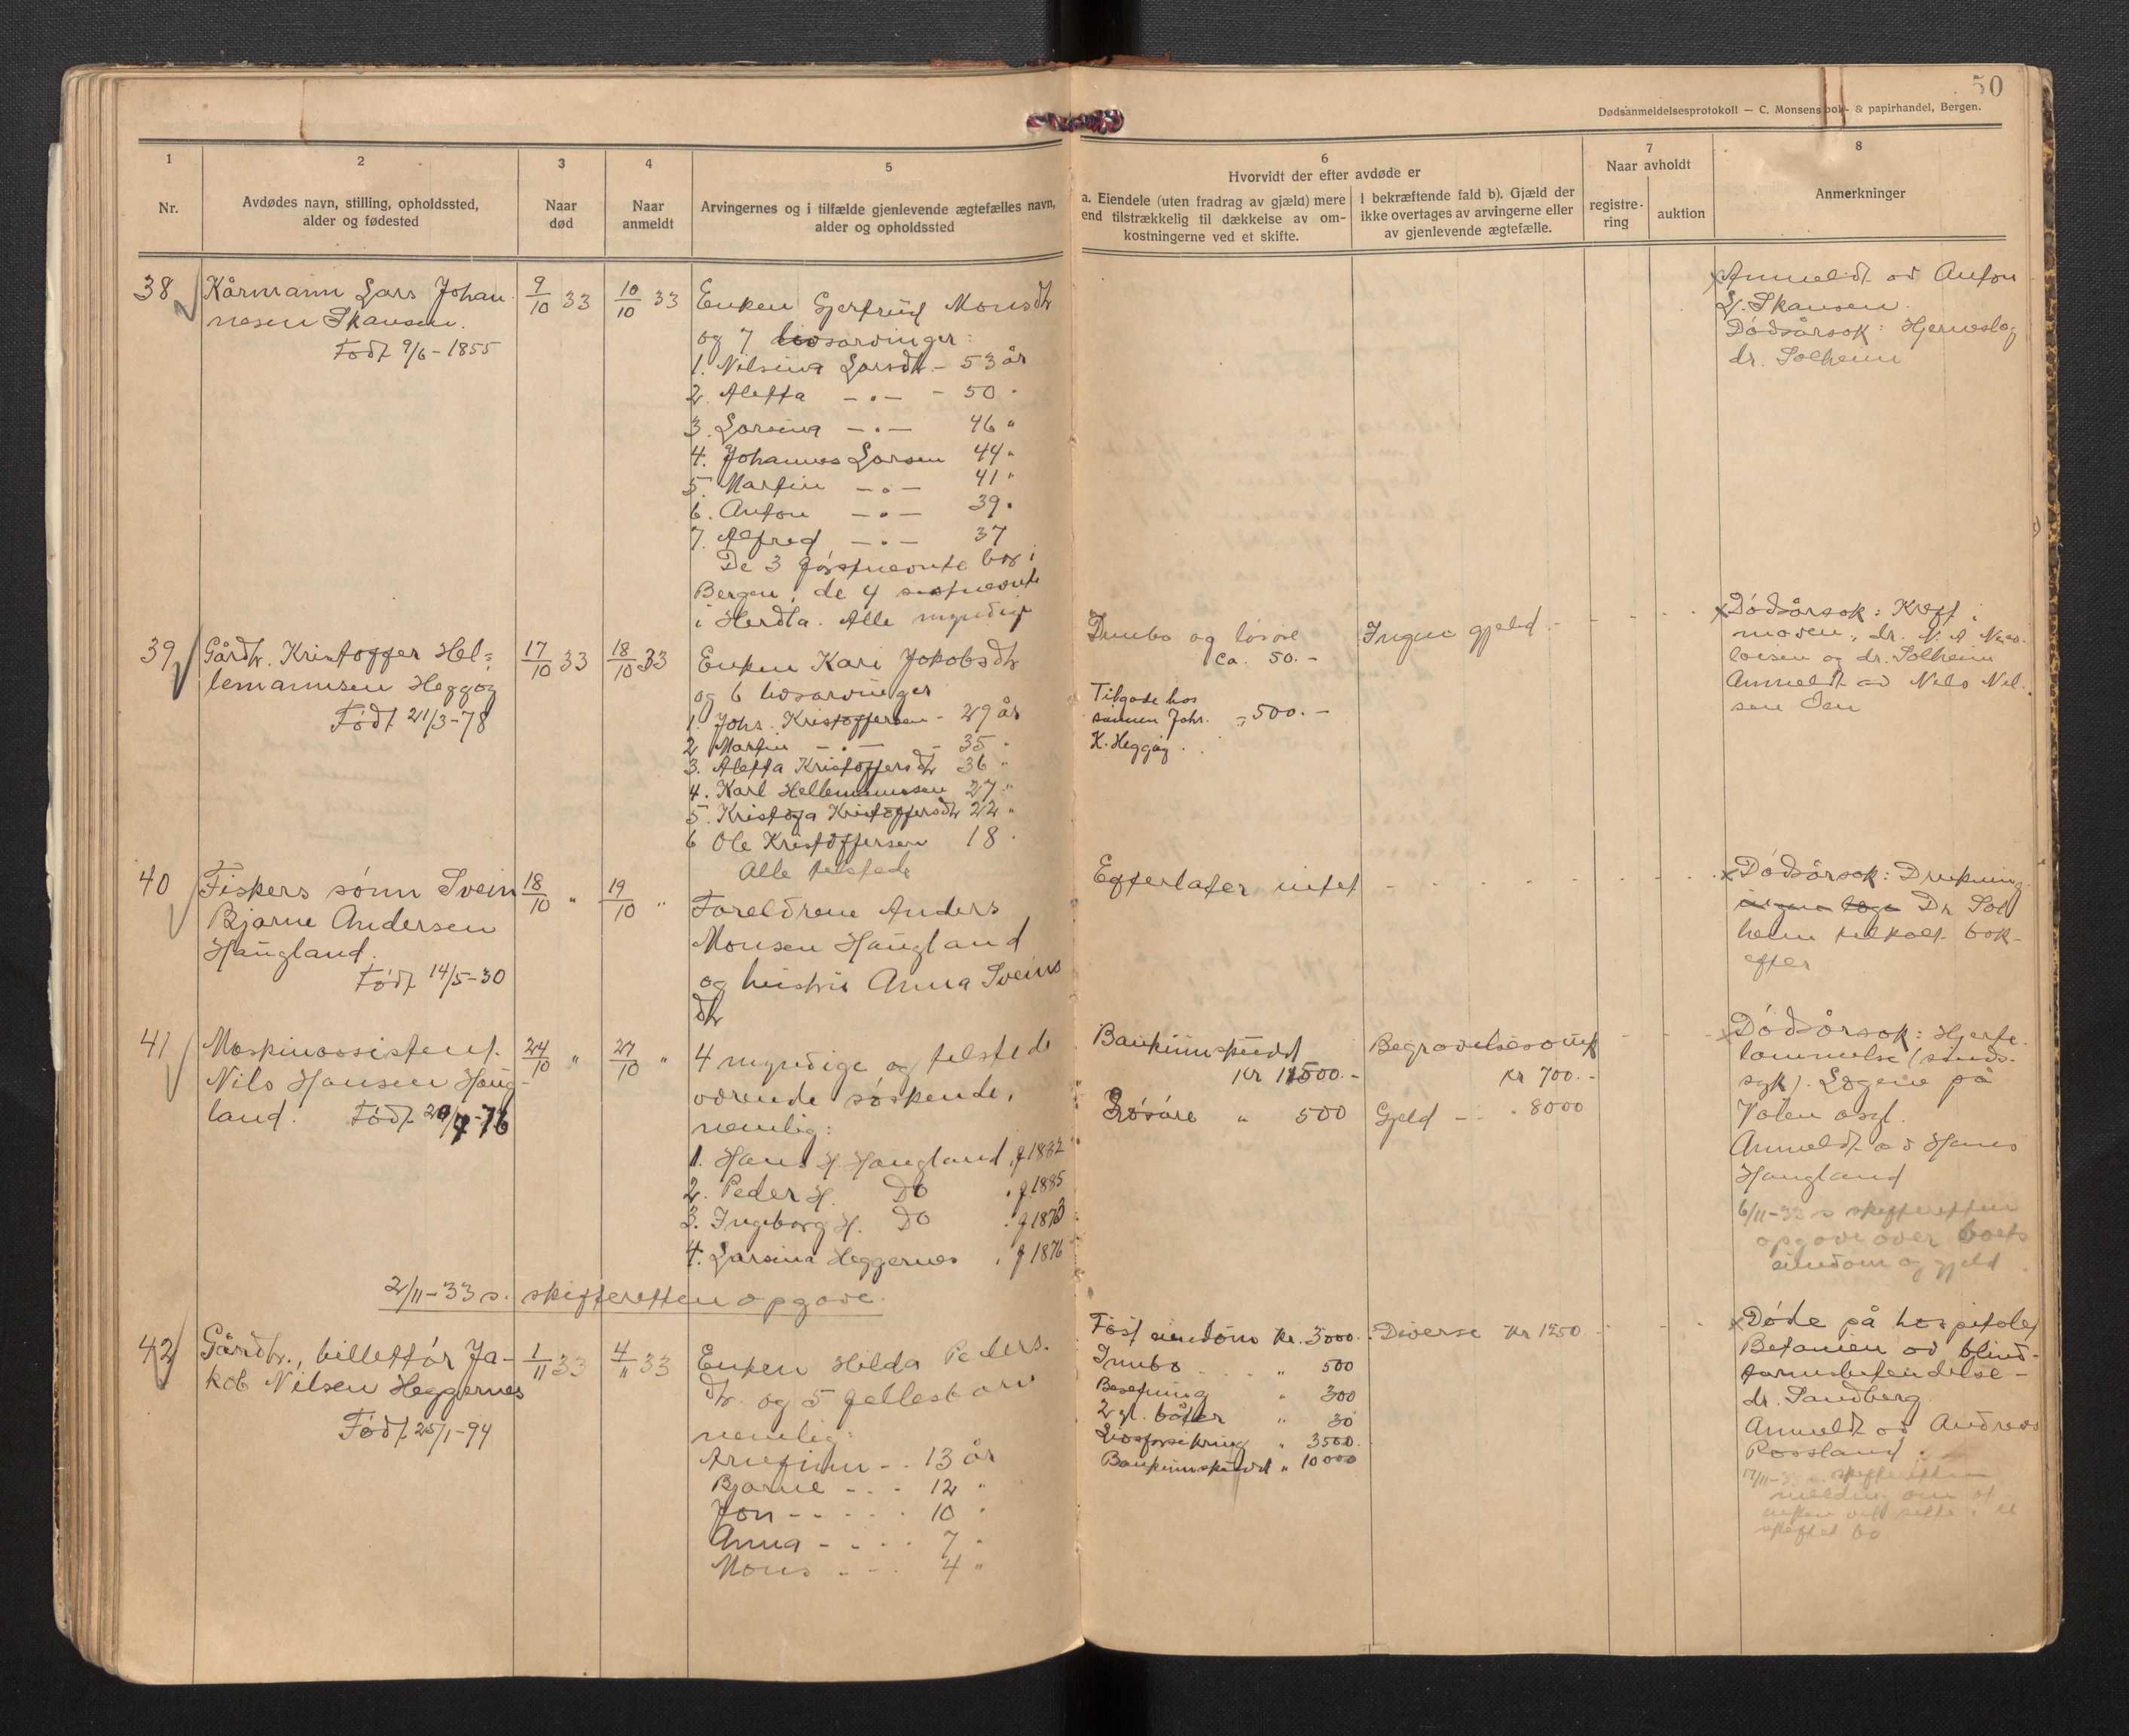 50
Dødsanmeldelsesprotokoll — C. Monsens bok- & papirhandel, Bergen.
1
Nr.
2
Avdødes navn, stilling, opholdssted,
alder og fødested
3
Naar
død
4
Naar
anmeldt
5
Arvingernes og i tilfælde gjenlevende ægtefælles navn,
alder og opholdssted
6
Hvorvidt der efter avdøde er
a. Eiendele (uten fradrag av gjæld) mere
end tilstrækkelig til dækkelse av om-
kostningerne ved et skifte.
I bekræftende fald b). Gjæld der
ikke overtages av arvingerne eller
av gjenlevende ægtefælle.
7
Naar avholdt
registre-
ring
auktion
8
Anmerkninger
38
Kårmann Lars Johan-
nesen Skansen.
Født 9/6-1855
9/10 33
10/10 33
Enken Gjertrud Monsdtr
og 7 livsarvinger:
1. Nilsina Larsdtr - 53 år
2. Aletta - " - - 50 "
3. Larsina - " - 46 "
4. Johannes Larsen 44 "
5. Martin - " - 41 "
6. Anton - " - 39 "
7. Alfred - " - 37
De 3 førstnevnte bor i
Bergen, de 4 sistnevnte
i Herdla. Alle myndige
x Anmeldt av Anton
L. Skansen.
Dødsårsak: Hjerneslag
dr. Solheim
39
Gårdbr. Kristoffer Hel-
lemannsen Heggøy
Født 21/3-78
17/10 33
18/10 33
Enken Kari Jakobsdtr
og 6 livsarvinger
1. Johs. Kristoffersen - 29 år
2 Martin - " - - 35 "
3. Aletta Kristoffersdtr 36 "
4. Karl Hellemannsen 27 "
5. Kristofa Kristoffersdtr 22 "
6 Ole Kristoffersen 18 "
Alle tilstede
Innbo og løsøre
ca. 50.-
Tilgode hos
sønnen Johs. " 500.-
K. Heggøy
Ingen gjeld.-
x Dødsårsak: Kreft i
maven, dr. N. A.
og dr. Solheim
Anmeldt av Nils Nil-
sen
40
Fiskers sønn Svein
Bjarne Andersen
Haugland.
Født 14/5-30
18/10 "
19/10 "
Foreldrene Anders
Monsen Haugland
og hustru Anna Sveins
dtr
Efterlater intet
x Dødsårsak: Drukning
Dr Sol
heim tilkalt bak-
efter
41
Maskinassistent
Nils Hansen Haug-
land. Født 20/7-76
24/10 "
27/10 "
4 myndige og tilstede
værende søskende,
nemlig:
1. Hans H. Haugland, f 1882
2. Peder H. Do , f 1885
3. Ingeborg H. Do , f 1873
4. Larsina Heggernes , f 1876
Bankinnskudd
kr 11500.-
Løsøre " 500
Begravelsesomk
kr 700.-
Gjeld - " 8000
x Dødsårsak: Hjerte-
lammelse (sinds-
syk). Lægene på
Valen asyl.
Anmeldt av Hans
Haugland
6/11-33 s. skifteretten
opgave over boets
eiendom og gjeld
2/11-33 s. skifteretten opgave.
42
Gårdbr., billettør Ja-
kob Nilsen Heggernes
Født 25/1-94
1/11 33
4/11 33
Enken Hilda Peders-
dtr. og 5 fellesbarn
nemlig:
Arnfinn - - 13 år
Bjarne - - - 12 "
Jon - - - - - 10 "
Anna - - - - 7 "
Mons - - - 4 "
Fast eiendom kr. 3000.
Innbo " 500
Besetning " 300
2 gl. båter " 30
Livsforsikring " 3500.
Bankinnskudd " 10000
Diverse kr 1250
x Døde på hospitalet
Betanien av blind-
tarmsbetendelse -
dr. Sandberg.
Anmeldt av Andreas
Rossland.
skifteretten
melding om at
enken vil sitte i u
skiftet bo